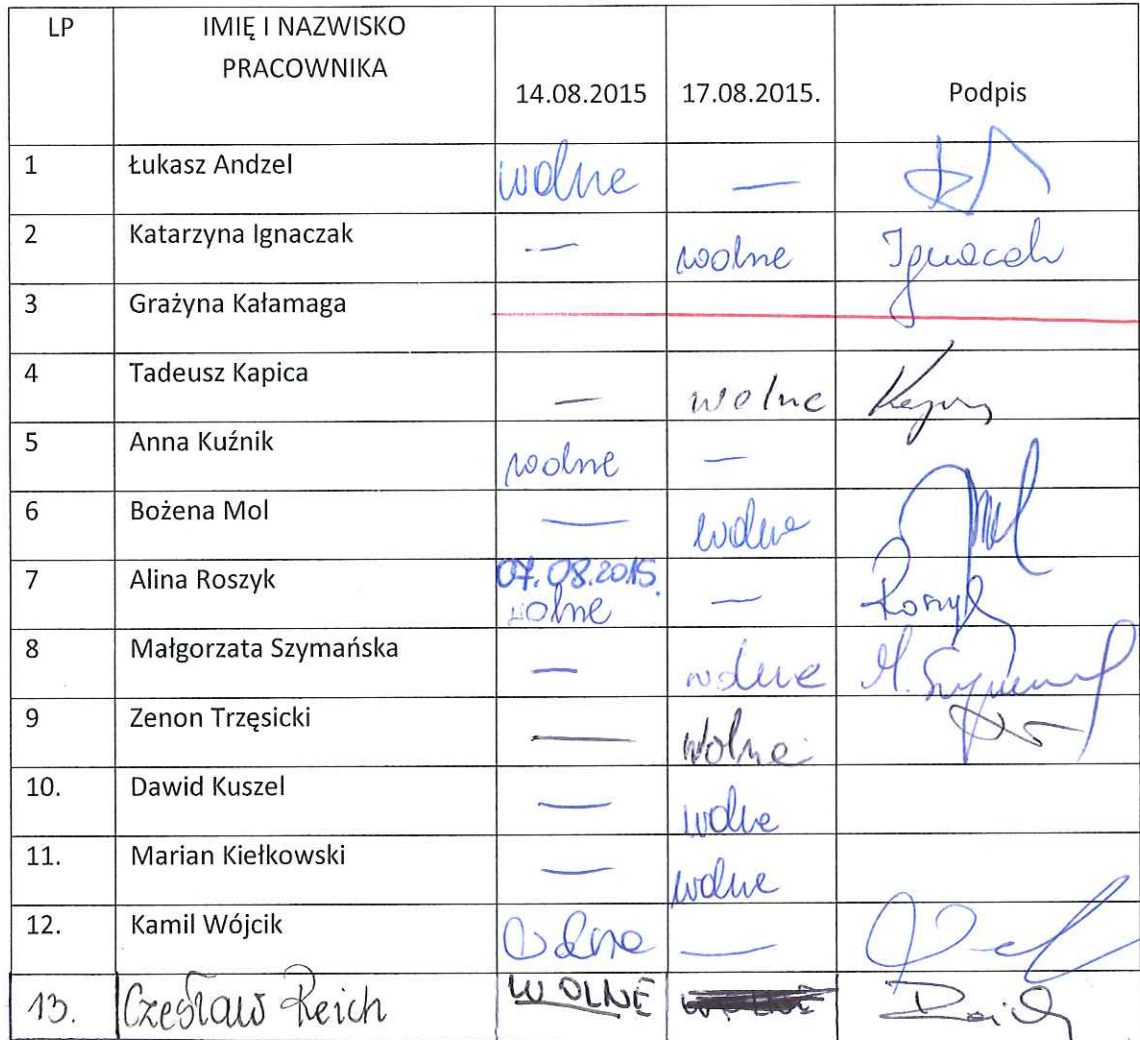 LP IMIĘ I NAZWISKO
PRACOWNIKA
14.08.2015 17.08.2015. Podpis
1 Łukasz Andzel wolne —
2 Katarzyna Ignaczak — wolne Ignaczak
3 Grażyna Kałamaga
4 Tadeusz Kapica — wolne
5 Anna Kuźnik wolne —
6 Bożena Mol — wolne Mol
7 Alina Roszyk 07.08.2015.
wolne — Roszyk
8 Małgorzata Szymańska — wolne M. Szymańska
9 Zenon Trzęsicki — wolne
10. Dawid Kuszel — wolne
11. Marian Kiełkowski — wolne
12. Kamil Wójcik Wolne —
13. Czesław Reich WOLNE Reich